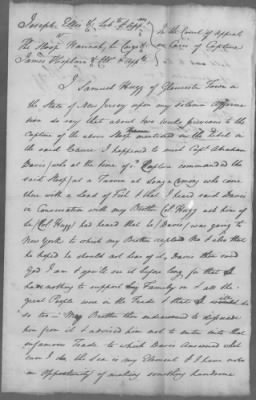 Joseph Ellis &c Lib.ts & App
vs
The Sloop Hannah her Cargo &
James Hopkins & Clts & App
In the Court of Appeal
in Cases of Capture
I Samuel Hugg of Gloucester Town in
the State of New Jersey upon my solemn affirma
tion do say that about two weeks previous to the
Capture of the above Sloop mentioned in the Libel in
the said Cause I happened to meet Capt Abraham
Davis (who at the time of Capture commanded the
said Sloop) at a Tavern at Long a Coming who came
there with a Load of Fish & that I heard said Davis
in Conversation with my Brother Col Hugg ask him if
he (Col Hugg) had heard that he (Davis) was going to
New York to which my Brother replied No & also that
he hoped he should not hear of it, Davis then said
God I am & you'll see it before long, for that I
have nothing to support my Family on & all the
great People were in the Trade & that I would do
so too - My Brother then endeavoured to disswade
him from it & advised him not to enter into that
infamous Trade to which Davis Answered what
can I do the Sea is my Element & I have now
an Opportunity of making something handsome